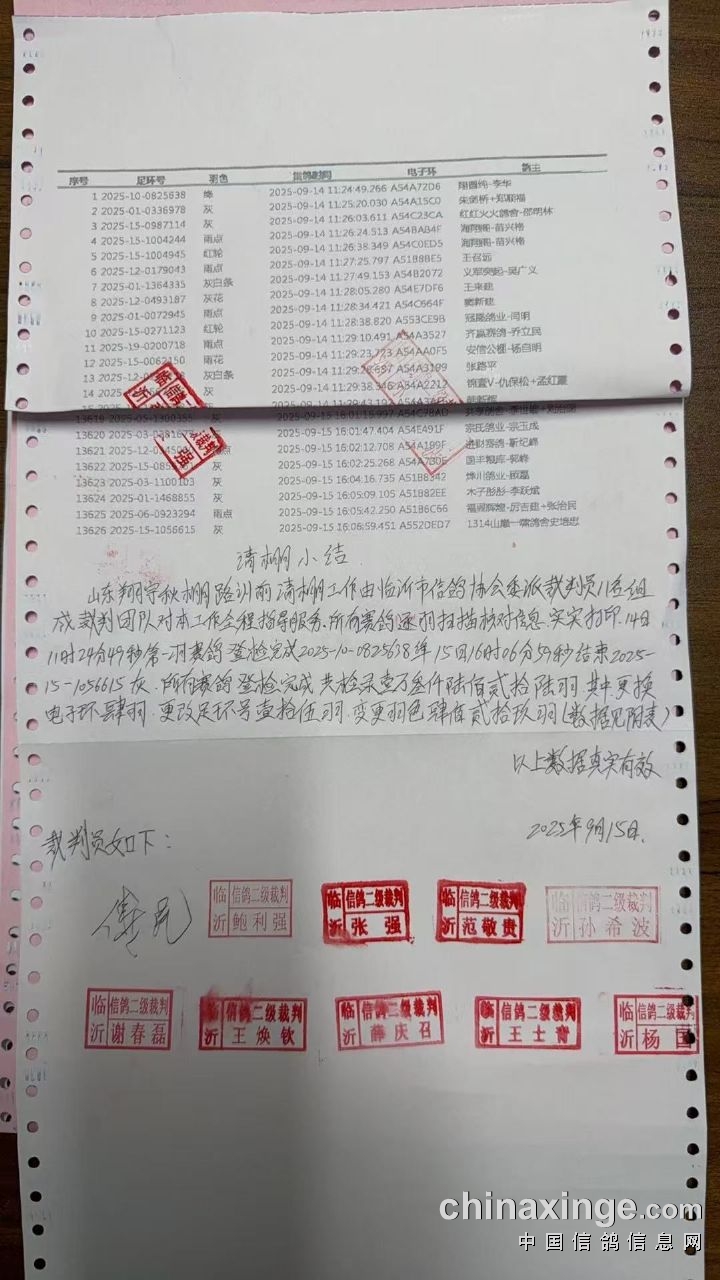 序号 足环号 羽色 信鸽时间 电子环 鸽主
1 2025-10-0825638 绛 2025-09-14 11:24:49.266 A54A72D6 李华
2 2025-01-0336978 灰 2025-09-14 11:25:20.030 A54A15C0 朱剑桥+郑顺福
3 2025-15-0987114 灰 2025-09-14 11:26:03.611 A54C23CA 红红火火鸽舍-邵明林
4 2025-15-1004244 雨点 2025-09-14 11:26:24.513 A54BAB4F 海翔阁-苗兴格
5 2025-15-1004945 红轮 2025-09-14 11:26:38.349 A54C0ED5 海翔阁-苗兴格
6 2025-12-0179043 雨点 2025-09-14 11:27:25.797 A51B8BE5 王召远
7 2025-01-1364335 灰白条 2025-09-14 11:27:49.153 A54B2072 义军突起-吴广义
8 2025-12-0493187 灰花 2025-09-14 11:28:05.280 A54E7DF6 王来建
9 2025-01-0072945 雨点 2025-09-14 11:28:34.421 A54C664F 窦新建
10 2025-15-0271123 红轮 2025-09-14 11:28:38.820 A553CE9B 冠隆鸽业-闫明
11 2025-19-0200718 雨点 2025-09-14 11:29:10.491 A54A3527 齐赢赛鸽-乔立民
12 2025-15-0062150 雨花 2025-09-14 11:29:23.723 A54AA0F5 安信公棚-杨自明
13 2025-12- 灰白条 2025-09-14 A54A3199 张路平
14 2025- 灰 2025-09-14 11:29:38.346 A34A2212 锦壹V-仇保松+孟红霞
13620 2025-03- 灰 2025-09-15 16:01:47.404 A54EA91F 宗氏鸽业-宗玉成
13621 2025-12- 雨点 2025-09-15 16:02:12.708 A54A199F 进财赛鸽-靳纪峰
13622 2025-15- 灰 2025-09-15 16:02:25.268 国丰粮库-郭峰
13623 2025-03-1100103 灰 2025-09-15 16:04:16.735 A51B8342 烨川鸽业-顾磊
13624 2025-01-1468855 灰 2025-09-15 16:05:09.105 A51B82EE 木子彤彤-李跃斌
13625 2025-06-0923294 雨点 2025-09-15 16:05:42.250 A51B6C66 福润辉煌-厉吉建+张治民
13626 2025-15-1056615 灰 2025-09-15 16:06:59.451 A552DED7 1314山巅一嘴鸽舍史培忠
清棚小结
山东翔宇秋棚路训前清棚工作由临沂市信鸽协会委派裁判员11名组
成裁判团队对本工作全程指导服务.所有赛鸽逐羽扫描核对信息.实实打印.14日
11时24分49秒第一羽赛鸽登检完成2025-10-0825638绛15日16时06分59秒结束2025-
15-1056615灰.所有赛鸽登检完成共检录壹万叁仟陆佰贰拾陆羽.其中更换
电子环肆羽.更改足环号壹拾伍羽.变更羽色肆佰贰拾玖羽(数据见附表)
以上数据真实有效
2025年9月15日.
裁判员如下:
临沂 信鸽二级裁判 鲍利强
临沂 信鸽二级裁判 张强
临沂 信鸽二级裁判 范敬贵
临沂 信鸽二级裁判 孙希波
临沂 信鸽二级裁判 谢春磊
临沂 信鸽二级裁判 王焕钦
临沂 信鸽二级裁判 薛庆召
临沂 信鸽二级裁判 王士青
临沂 信鸽二级裁判 杨国
chinaxinge.com
中国信鸽信息网